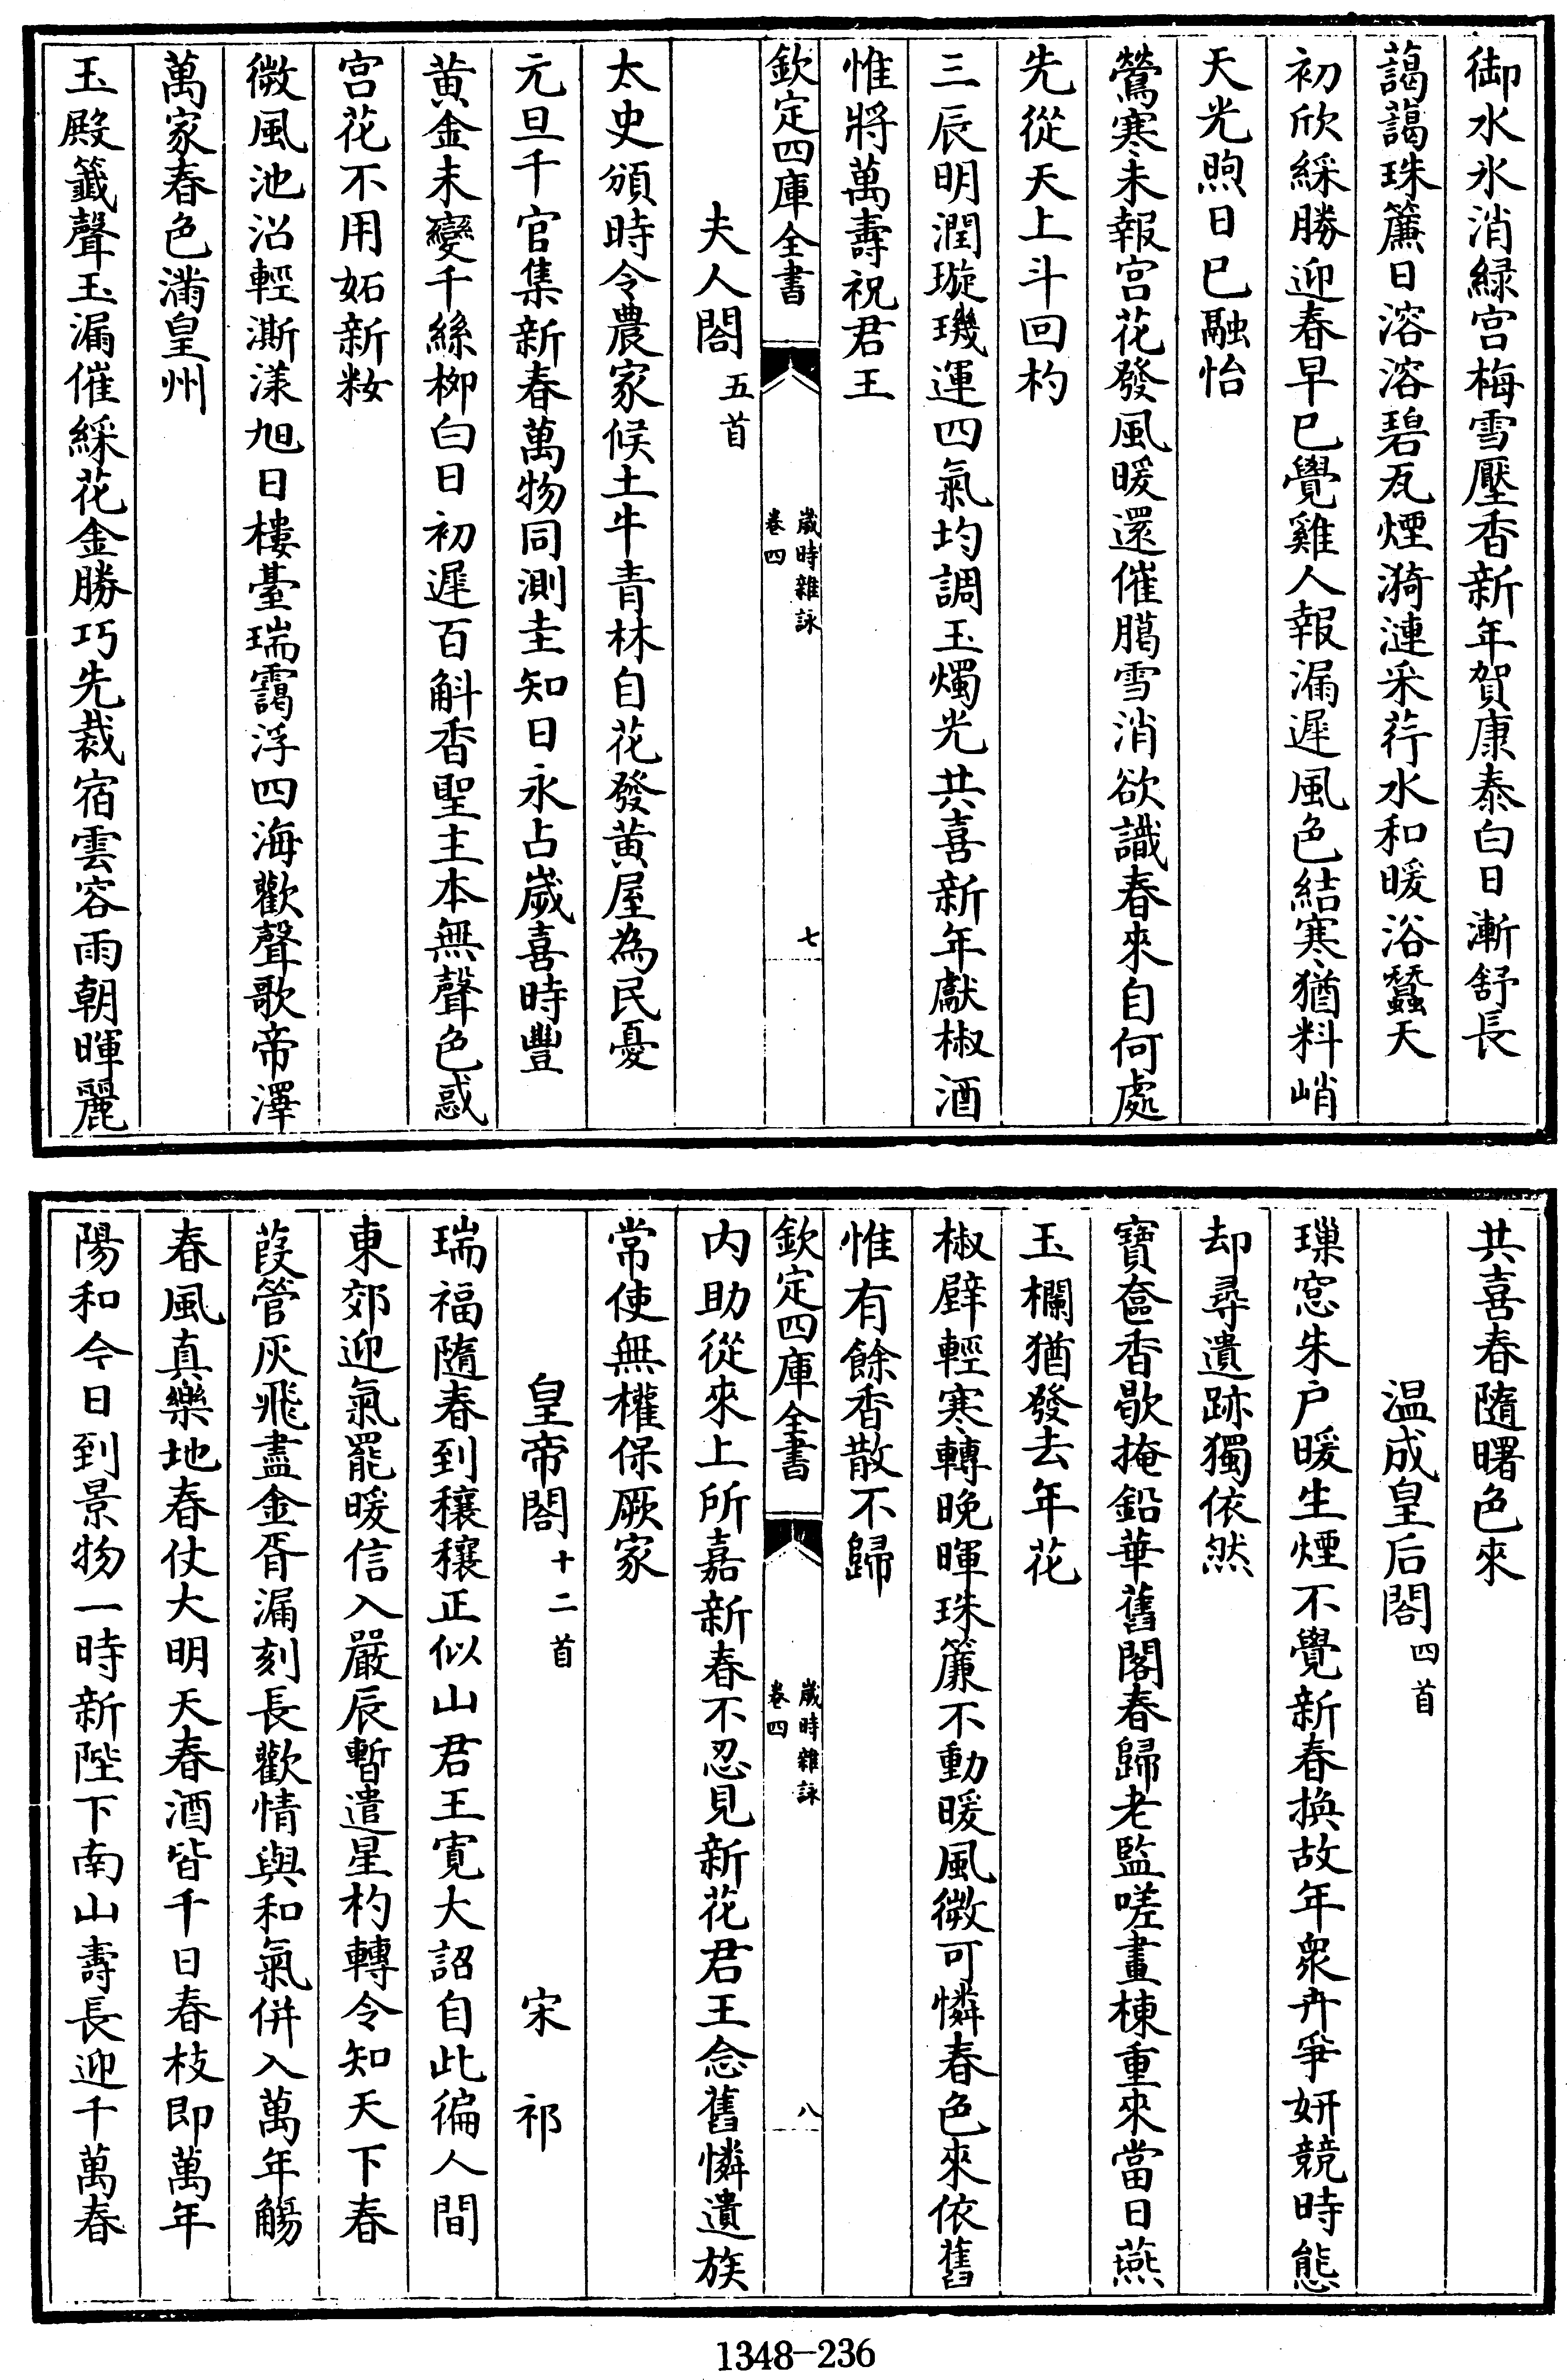 御水氷消緑宫梅雪壓香新年賀康泰白日漸舒長
藹藹珠簾日溶溶碧瓦煙漪漣采荇水和暖浴蠶天
初欣綵勝迎春早已覺雞人報漏遲風色結寒猶料峭
天光煦日已融怡
鶯寒未報宫花發風暖還催臈雪消欲識春來自何處
先從天上斗回杓
三辰明潤璇璣運四氣均調玉燭光共喜新年獻椒酒
惟將萬壽祝君王
欽定四庫全書
歲時雜詠
卷四
七
夫人閤五首
太史頒時令農家候土牛青林自花發黄屋為民憂
元旦千官集新春萬物同測圭知日永占嵗喜時豐
黄金未變千絲柳白日初遲百斛香聖主本無聲色惑
宫花不用妬新粧
微風池沼輕澌漾旭日樓臺瑞靄浮四海歡聲歌帝澤
萬家春色滿皇州
玉殿籤聲玉漏催綵花金勝巧先裁宿雲容雨朝暉麗
共喜春隨曙色來
温成皇后閤四首
璅窓朱户暖生煙不覺新春換故年衆卉爭妍競時態
却尋遺跡獨依然
寶奩香歇掩鉛華舊閣春歸老監嗟畫棟重來當日燕
玉欄猶發去年花
椒壁輕寒轉晚暉珠簾不動暖風微可憐春色來依舊
惟有餘香散不歸
欽定四庫全書
歲時雜詠
卷四
八
内助從來上所嘉新春不忍見新花君王念舊憐遺族
常使無權保厥家
皇帝閤十二首　宋祁
瑞福隨春到穰穰正似山君王寛大詔自此徧人間
東郊迎氣罷暖信入嚴辰暫遣星杓轉令知天下春
葭管灰飛盡金胥漏刻長歡情與和氣併入萬年觴
春風真樂地春仗大明天春酒皆千日春枝即萬年
陽和今日到景物一時新陛下南山壽長迎千萬春
1348-236